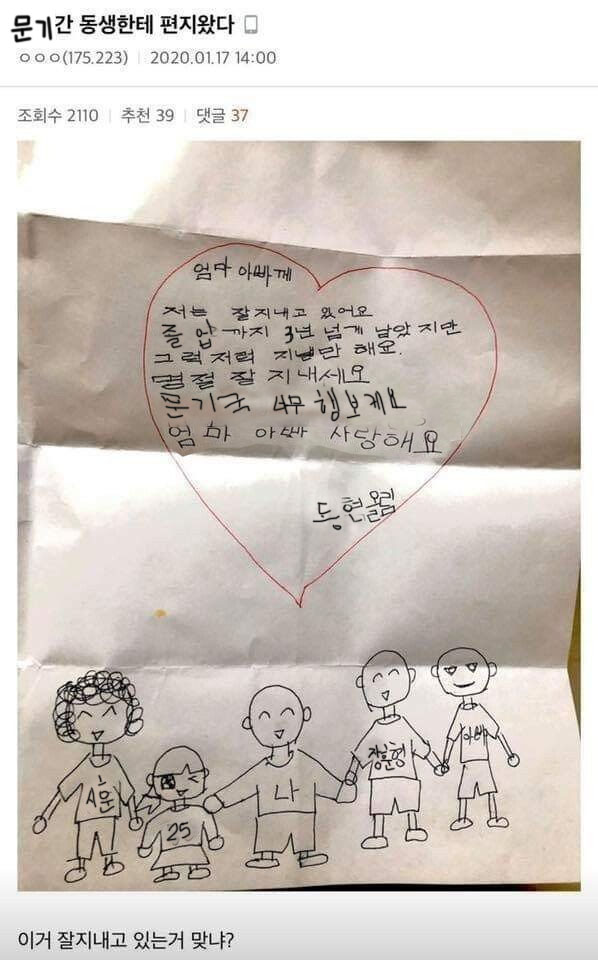 문기간 동생한테 편지왔다
ㅇㅇㅇ(175.223) | 2020.01.17 14:00
조회수 2110 | 추천 39 | 댓글 37
엄마 아빠께
저는 잘지내고 있어요
졸압까지 3년 넘게 남았지만
그럭저럭 지낼만 해요.
명절 잘 지내세요
문기국 4무 행보게요
엄마 아빠 사당해요
동현올림
25
나
장문형
아빠
이거 잘지내고 있는거 맞냐?